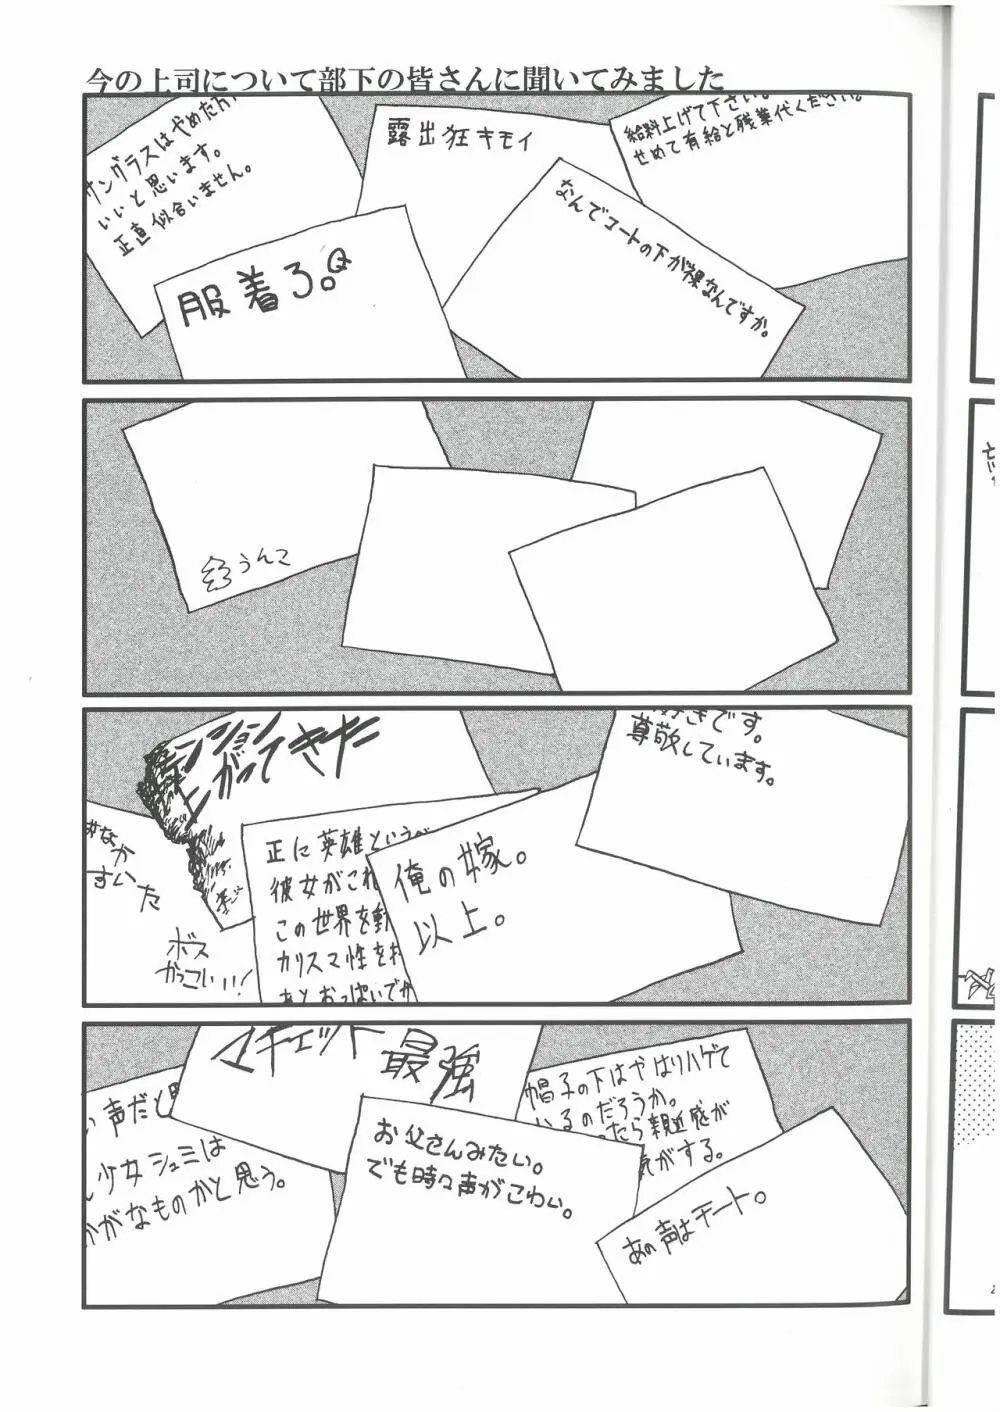 今の上司について部下の皆さんに聞いてみました
サングラスはやめた方
いいと思います。
正直似合いません。
露出狂キモイ
給料上げて下さい。
せめて有給と残業代ください。
なんでコートの下が裸なんですか。
服着ろ。Q
うんこ
テンション
上がってきた
好きです。
尊敬しています。
なか
すいた
ボス
かっこいい!
正に英雄という
彼女がこれ
この世界を動
カリスマ性を
あとおっぱいでか
俺の嫁。
以上。
マチェット
最強
い声だと
少女シュミは
かがなものかと思う。
お父さんみたい。
でも時々声がこわい。
帽子の下はやはりハゲて
いるのだろうか。
ったら親近感が
がする。
あの声はチート。